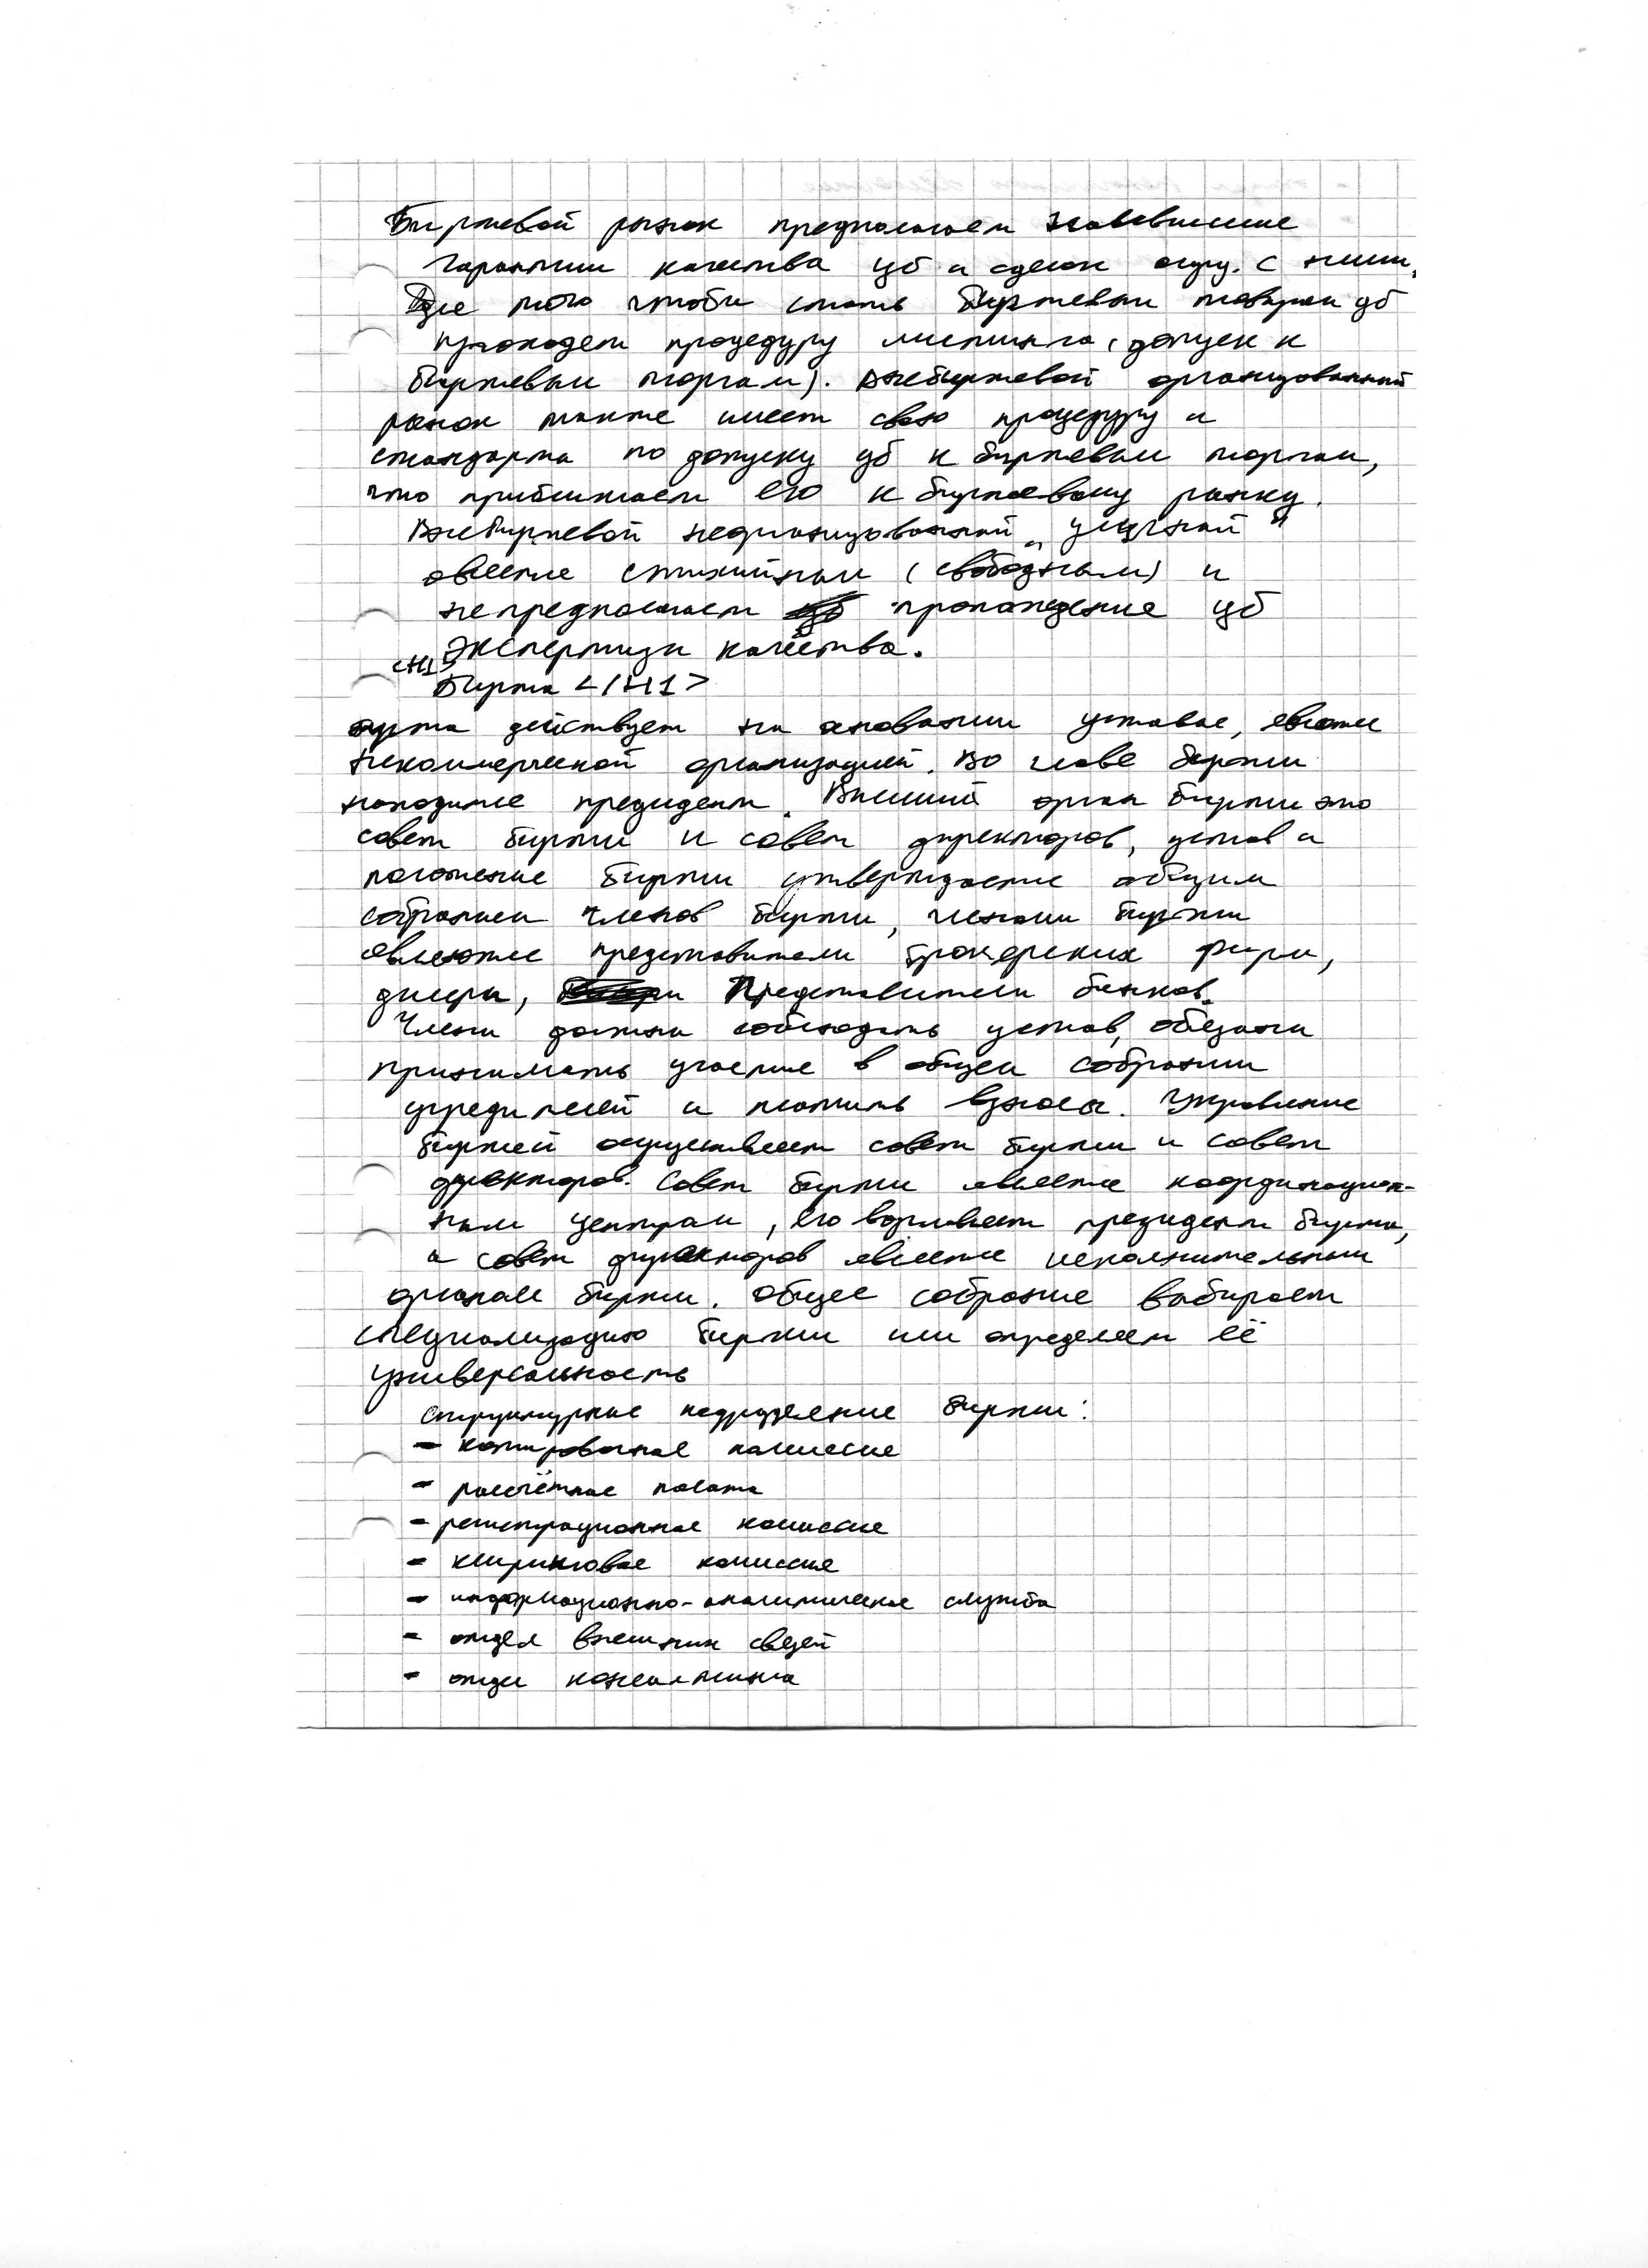 Биржевой рынок предполагает наивысшие
гарантии качества цб и сделок осущ. с ними.
Для того чтобы стать биржевым товаром цб
проходят процедуру листинга (допуск к
биржевым торгам). Внебиржевой организованный
рынок также имеет свою процедуру и
стандарты по допуску цб к биржевым торгам,
что приближает его к биржевому рынку.
Внебиржевой неорганизованный „уличный"
является стихийным (свободным) и
не предполагает прохождение цб
экспертизы качества.
<H1>
Биржа </H1>
биржа действует на основании устава, является
некоммерческой организацией. Во главе биржи
находится президент. Высший орган биржи это
совет биржи и совет директоров, устав и
положение биржи утверждается общим
собранием членов биржи, членами биржи
являются представители брокерских фирм,
дилеры, представители банков.
Члены должны соблюдать устав, обязаны
принимать участие в общем собрании
учредителей и платить взносы. Управление
биржей осуществляет совет биржи и совет
директоров. Совет биржи является координацион-
ным центром, его возглавляет президент биржи,
а совет директоров является исполнительным
органом биржи. Общее собрание выбирает
специализацию биржи или определяет её
универсальность
Структурные подразделение биржи:
- котировочная комиссия
- рассчётная палата
- регистрационная комиссия
- клиринговая комиссия
- информационно-аналитическая служба
- отдел внешних связей
- отдел консалтинга